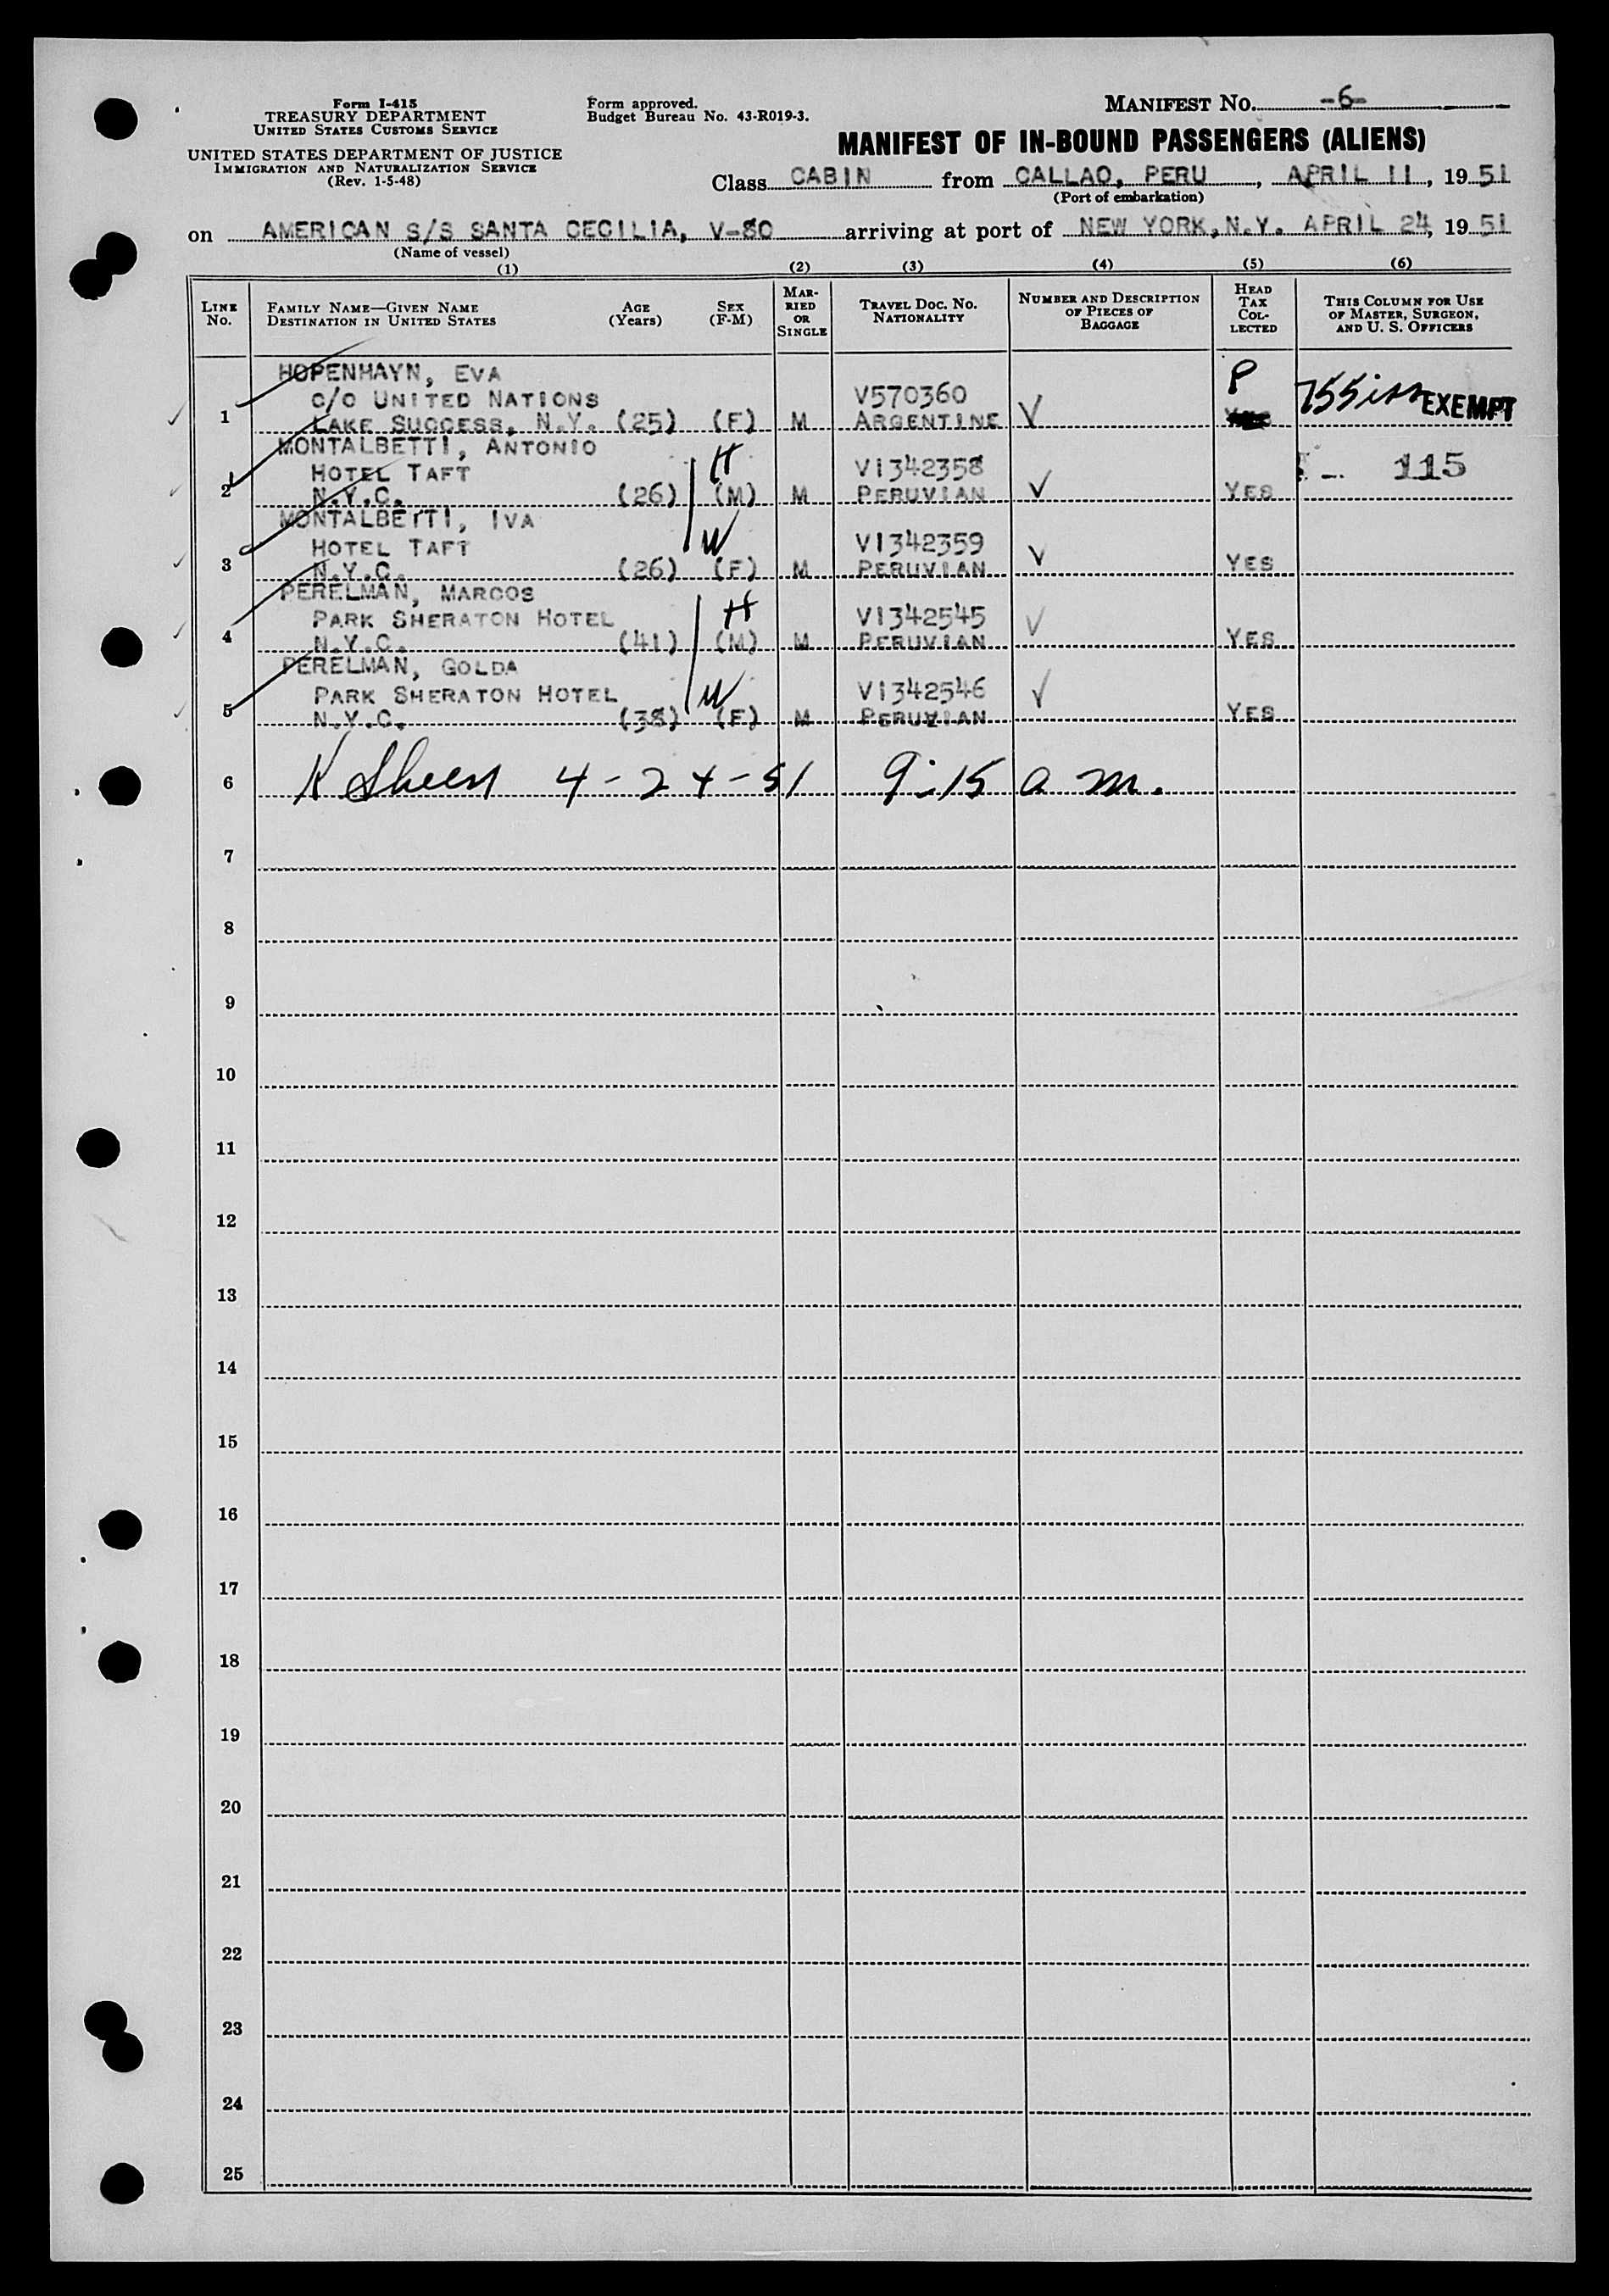 Form I-415
TREASURY DEPARTMENT
UNITED STATES CUSTOMS SERVICE
UNITED STATES DEPARTMENT OF JUSTICE
IMMIGRATION AND NATURALIZATION SERVICE
(Rev. 1-5-48)
Form approved.
Budget Bureau No. 43-R019-3.
MANIFEST NO. -6-
MANIFEST OF IN-BOUND PASSENGERS (ALIENS)
Class CABIN from CALLAO, PERU, APRIL 11, 1951
(Port of embarkation)
on AMERICAN S/S SANTA CECILIA, V-80 arriving at port of NEW YORK, N.Y. APRIL 24, 1951
(Name of vessel)
(1) (2) (3) (4) (5) (6)
LINE No.
FAMILY NAME—GIVEN NAME
DESTINATION IN UNITED STATES
AGE (Years)
SEX (F-M)
MARRIED OR SINGLE
TRAVEL DOC. NO.
NATIONALITY
NUMBER AND DESCRIPTION OF PIECES OF BAGGAGE
HEAD TAX COLLECTED
THIS COLUMN FOR USE OF MASTER, SURGEON, AND U. S. OFFICERS
HOPENHAYN, EVA P
C/O UNITED NATIONS V570360
1 LAKE SUCCESS, N.Y. (25) (F) M ARGENTINE EXEMPT
MONTALBETTI, ANTONIO H
HOTEL TAFT V1342358 115
2 N.Y.C. (26) (M) M PERUVIAN YES
MONTALBETTI, IVA W
HOTEL TAFT V1342359
3 N.Y.C. (26) (F) M PERUVIAN YES
PERELMAN, MARCOS H
PARK SHERATON HOTEL V1342545
4 N.Y.C. (41) (M) M PERUVIAN YES
PERELMAN, GOLDA W
PARK SHERATON HOTEL V1342546
5 N.Y.C. (38) (F) M PERUVIAN YES
6 K Sheen 4-24-51 9:15 a m.
7
8
9
10
11
12
13
14
15
16
17
18
19
20
21
22
23
24
25